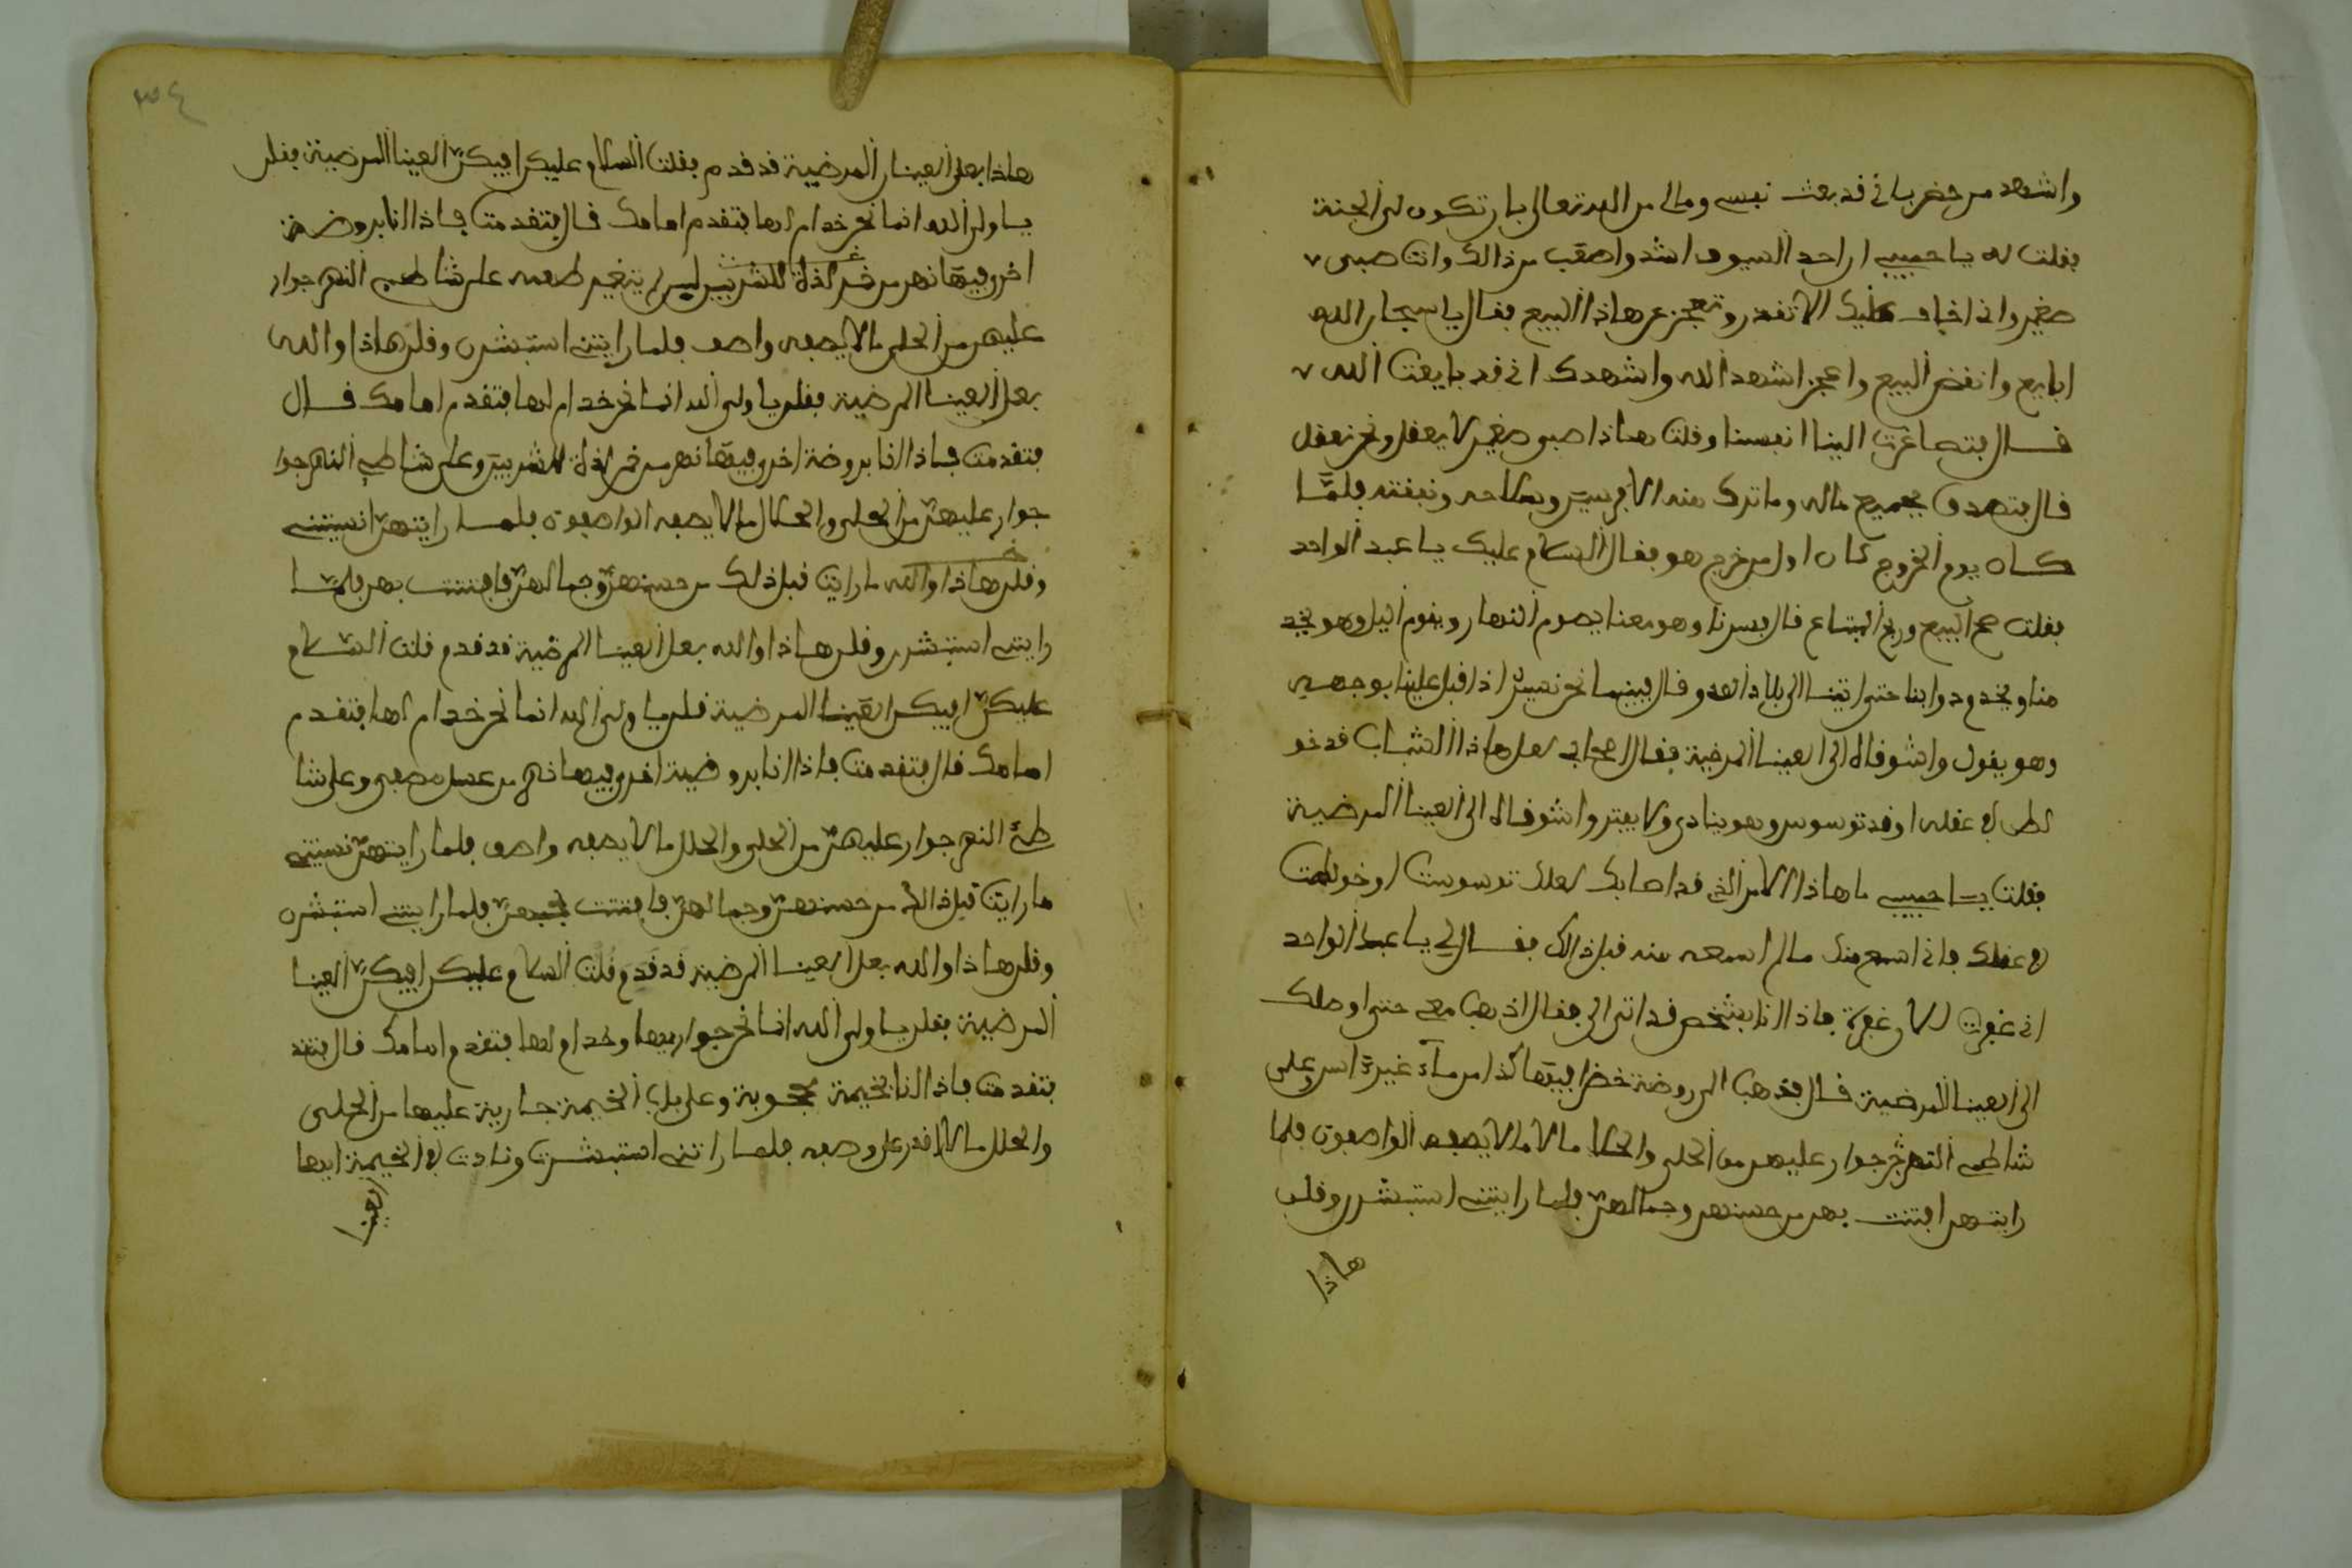 واشهد من حضر باني قد بعت نفسي ومالي من الله تعالى بان تكون لي الجنة
فقلت له يا حبيبي ان احد السيوف اشد واصعب من ذالك وانت صبي
صغير واني اخاف عليك الا تقدر وتعجز عن هاذا البيع فقال يا سبحان الله
ابايع وانقض البيع واعجز اشهد الله واشهدك اني قد بايعت الله
قال فتصاغرت الينا انفسنا وقلت هاذا صبي صغير لا يعقل ونحن نعقل
قال فتصدق بجميع ماله وما ترك منه الا فرسه وسلاحه ونفقته فلمّا
كان يوم الخروج كان اول من خرج هو فقال السلام عليك يا عبد الواحد
فقلت صح البيع وربح المتاع قال فسرنا وهو معنا يصوم النهار ويقوم اليل وهو يخد
منا ويخدم دوابنا حتى اتينا الى بلاد العدو قال فبينما نحن نسير اذ اقبل علينا بوجهه
وهو يقول واشوقاه الى العينا المرضية فقال اصحابي لعل هاذا الشباب قد خو
لط في عقله او قد توسوس وهو ينادي ولا يفتر واشوقاه الى العينا المرضية
فقلت يا حبيبي ما هاذا الامر الذي قد اصابك لعلك توسوست او خولطت
في عقلك فاني اسمع منك ما لم اسمعه منه قبل ذالك فقال لي يا عبد الواحد
اني غفوت الان غفوة فاذا انا بشخص قد اتى الي فقال اذهب معي حتى اوصلك
الى العينا المرضية قال فذهب الى روضة خضرا فيها من مآء غيره اسن وعلى
شاطي النهر جوار عليهن من الحلي والحلل ما لا ما لا يصفه الواصفون فلما
رايتهن افتتنت بهن من حسنهن وجمالهنّ فلما راينني استبشرن وقلن
هاذا
٣٤
هاذا بعل العينا المرضية قد قدم فقلت السلام عليكن افيكنّ العينا المرضية فقلن
يا ولي الله انما نحن خدام لها فتقدم امامك قال فتقدمت فاذا انا بروضة
اخرى فيها نهر من خمر لذة للشربين لم يتغير طعمه على شاطي النهر جوار
عليهن من الحلي ما لا يصفه واصف فلما راينني استبشرن وقلن هاذا والله
بعل العينا المرضية فقلن يا ولي الله انما نحن خدام لها فتقدم امامك قال
فتقدمت فاذا انا بروضة اخرى فيها نهر من خمر لذة للشربين وعلى شاطي النهر جوا
جوار عليهنّ من الحلي والحلل ما لا يصفه الواصفون فلما رايتهنّ انسينني
وقلن هاذا والله ما رايت قبل ذلك من حسنهنّ وجمالهنّ فافتتنت بهن فلمّا
راينني استبشرن وقلن هاذا والله بعل العينا المرضية قد قدم قلت السّلام
عليكنّ افيكن العينا المرضية قلن يا ولي الله انما نحن خدام لها فتقدم
امامك قال فتقدمت فاذا انا بروضة اخرى فيها نهر من عسل مصفى وعلى شا
طئ النهر جوار عليهنّ من الحلي والحلل ما لا يصفه واصف فلما رايتهنّ نسينني
ما رايت قبل ذالك من حسنهنّ وجمالهنّ فافتتنت بحبهنّ فلما راينني استبشرن
وقلن هاذا والله بعل العينا المرضية قد قدم قلت السلام عليكن افيكنّ العينا
المرضية فقلن يا ولي الله انما نحن جواريها وخدام لها فتقدم امامك قال فتقد
فتقدمت فاذا انا بخيمة مجوبة وعلى باب الخيمة جارية عليها من الحلي
والحلل ما لا اقدر على وصفه فلما راتني استبشرت ونادت في الخيمة ايها
العينا